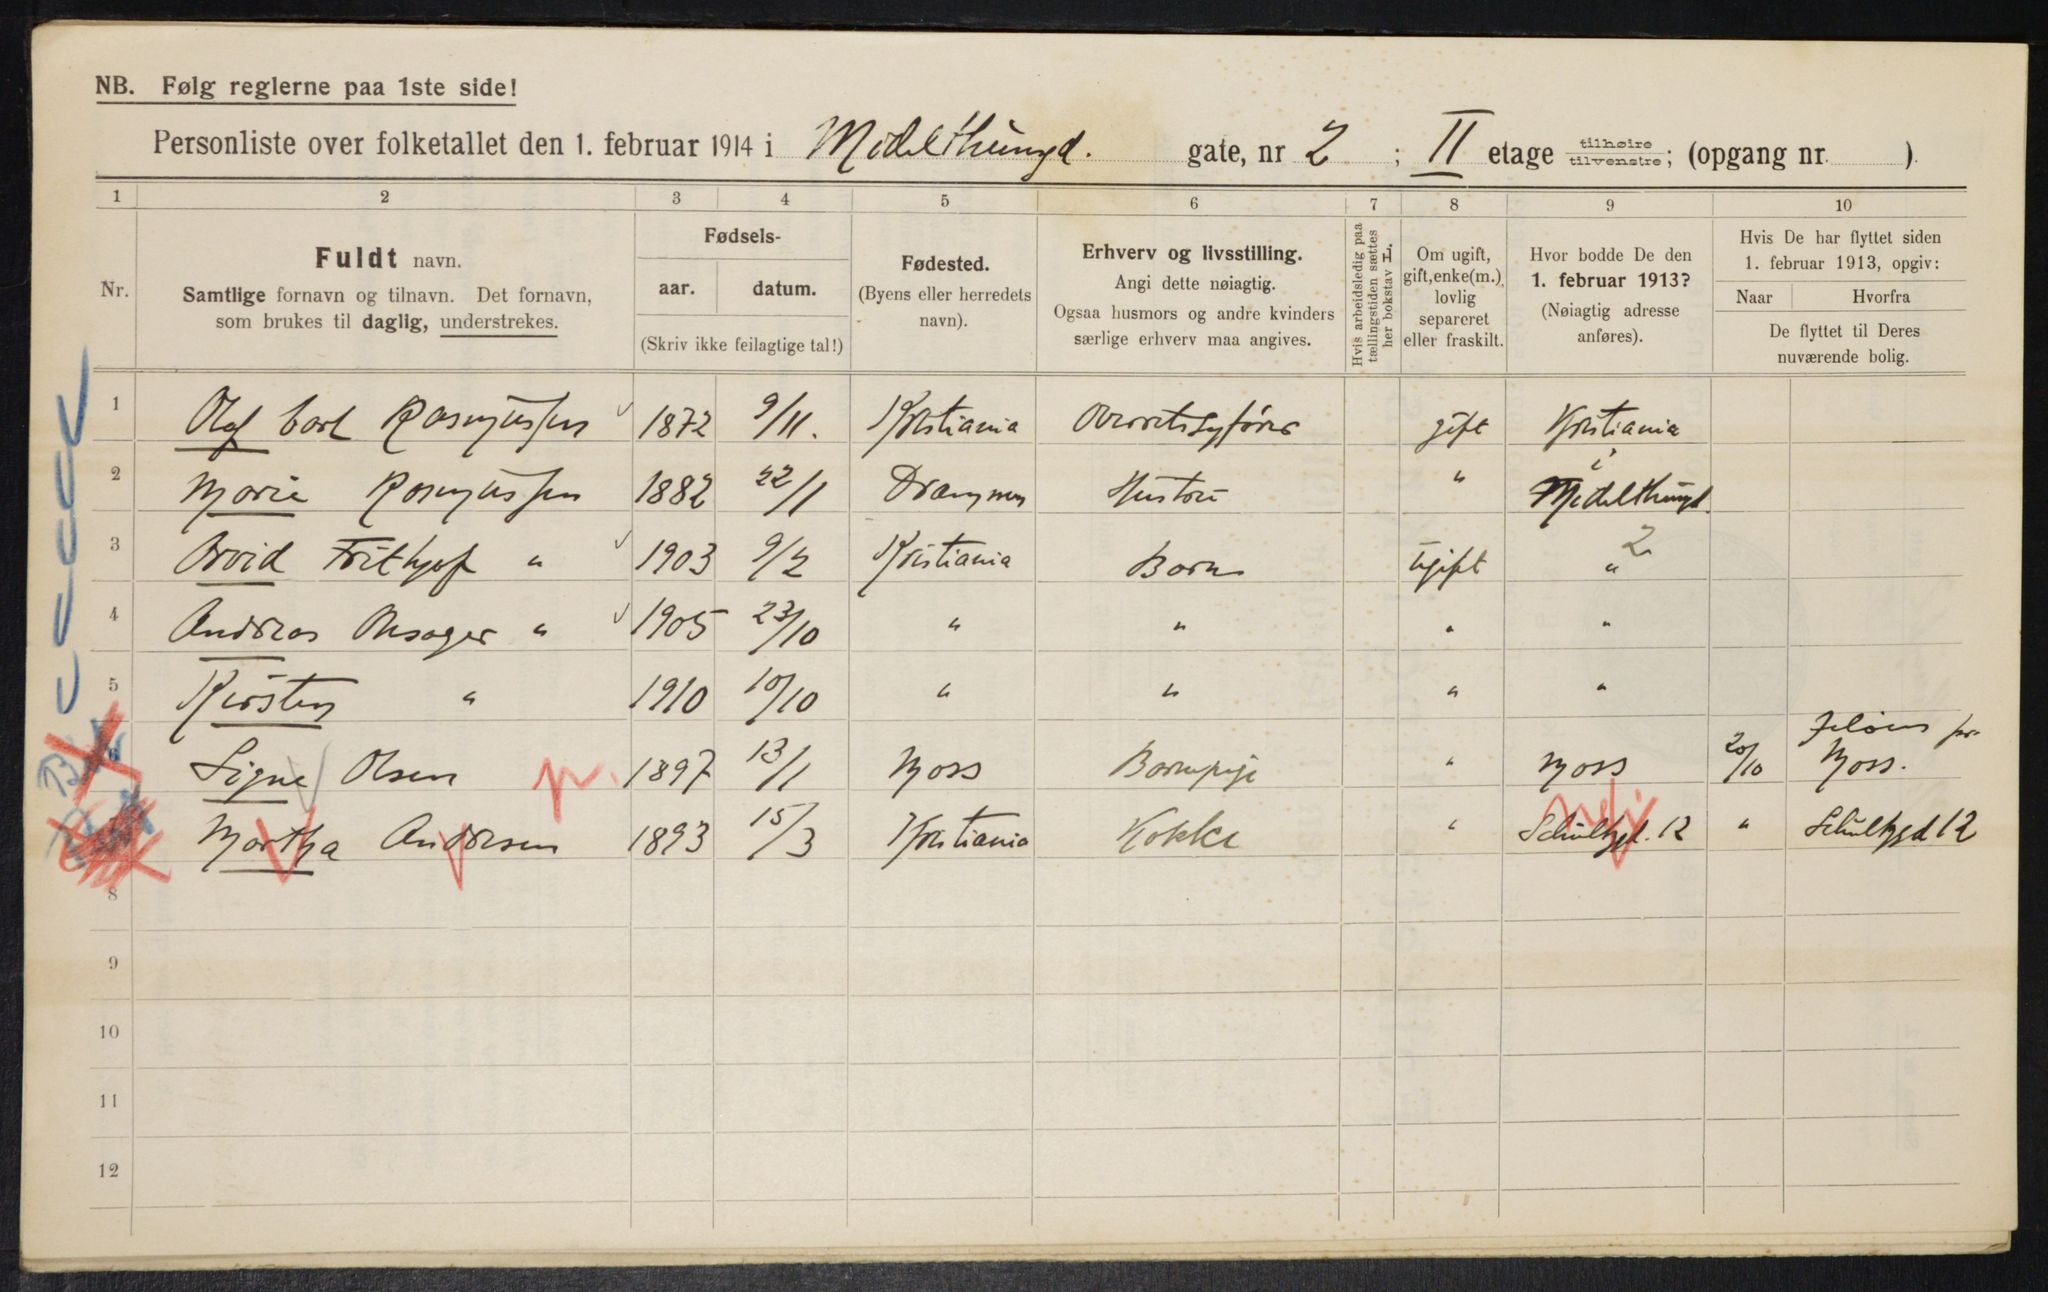 NB. Følg reglerne paa 1ste side!
Personliste over folketallet den 1. februar 1914 i Midelthungd. gate, nr 2 ; II etage tilhøire / tilvenstre; (opgang nr. )
1 2 3 4 5 6 7 8 9 10
Nr.
Fuldt navn.
Samtlige fornavn og tilnavn. Det fornavn,
som brukes til daglig, understrekes.
Fødsels-
aar. datum.
(Skriv ikke feilagtige tal!)
Fødested.
(Byens eller herredets
navn).
Erhverv og livsstilling.
Angi dette nøiagtig.
Ogsaa husmors og andre kvinders
særlige erhverv maa angives.
Hvis arbeidsledig paa
tællingstiden sættes
her bokstav L.
Om ugift,
gift, enke(m.),
lovlig
separeret
eller fraskilt.
Hvor bodde De den
1. februar 1913?
(Nøiagtig adresse
anføres).
Hvis De har flyttet siden
1. februar 1913, opgiv:
Naar Hvorfra
De flyttet til Deres
nuværende bolig.
1 Olaf Carl Rasmussen 1872 9/11. Kristiania Overretssagfører gift Kristiania
i
2 Marie Rasmussen 1882 22/1 Drammen Hustru " Midelthungd.
2
3 Arvid Frithjof " 1903 9/2 Kristiania Barn ugift "
4 Andreas Ansager " 1905 23/10 " " " "
5 Kirsten " 1910 10/10 " " " "
Jeløen pr.
6 Signe Olsen 1897 13/1 Moss Barnepige " Moss 20/10 Moss.
Martha Andersen 1893 15/3 Kristiania Kokke " Schultzgd. 12 " Schultzgd 12
8
9
10
11
12